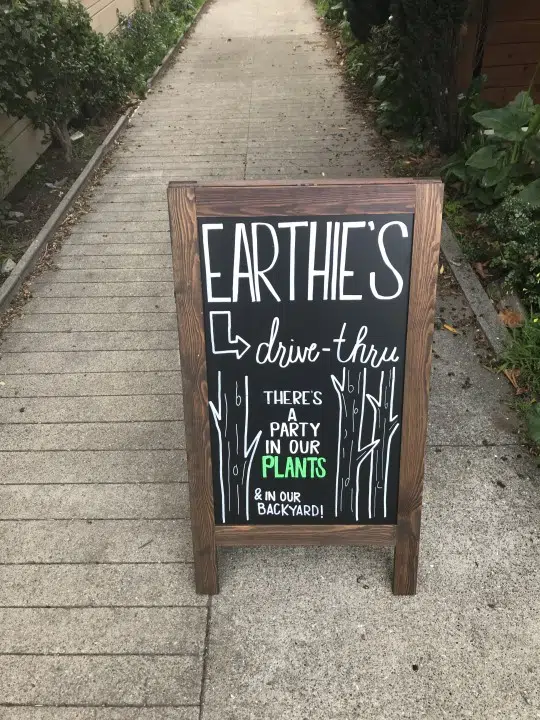 EARTHIE'S
drive-thru
THERE'S
A
PARTY
IN OUR
PLANTS
& IN OUR
BACKYARD!